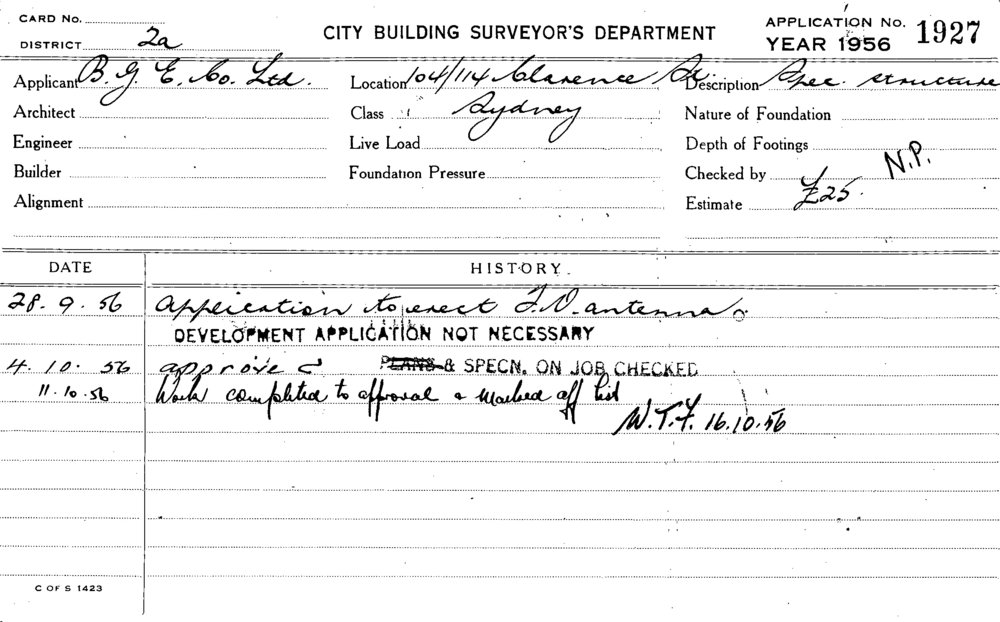 CARD No.
DISTRICT 2a
CITY BUILDING SURVEYOR'S DEPARTMENT
APPLICATION No. 1927
YEAR 1956
Applicant B. G. E. Co. Ltd.
Location 104/114 Clarence St.
Description Spec. structure
Architect
Class Sydney
Nature of Foundation
Engineer
Live Load
Depth of Footings
Builder
Foundation Pressure
Checked by N.P.
Alignment
Estimate £25.
DATE HISTORY.
28. 9. 56 Application to erect T.V. antenna.
DEVELOPMENT APPLICATION NOT NECESSARY
4. 10. 56 approved PLANS & SPECN. ON JOB CHECKED
11.10.56 Work completed to approval & marked off list
W.T.F. 16.10.56
C OF S 1423